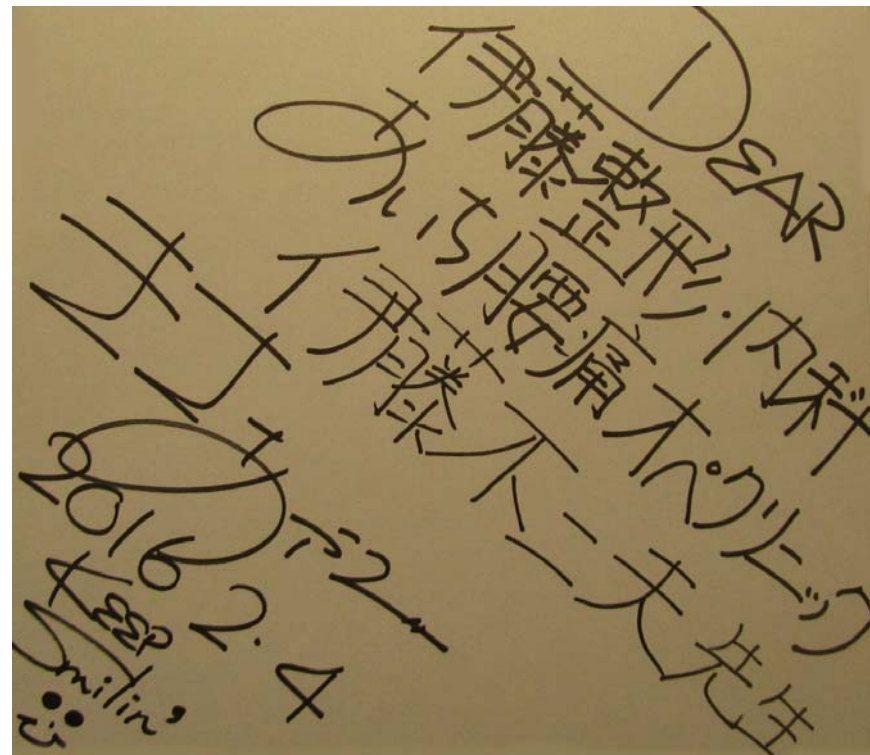 DEAR
伊藤整形・内科
あいち腰痛オペクリニック
伊藤不二夫先生
2016.2.4
KEEP
Smilin'